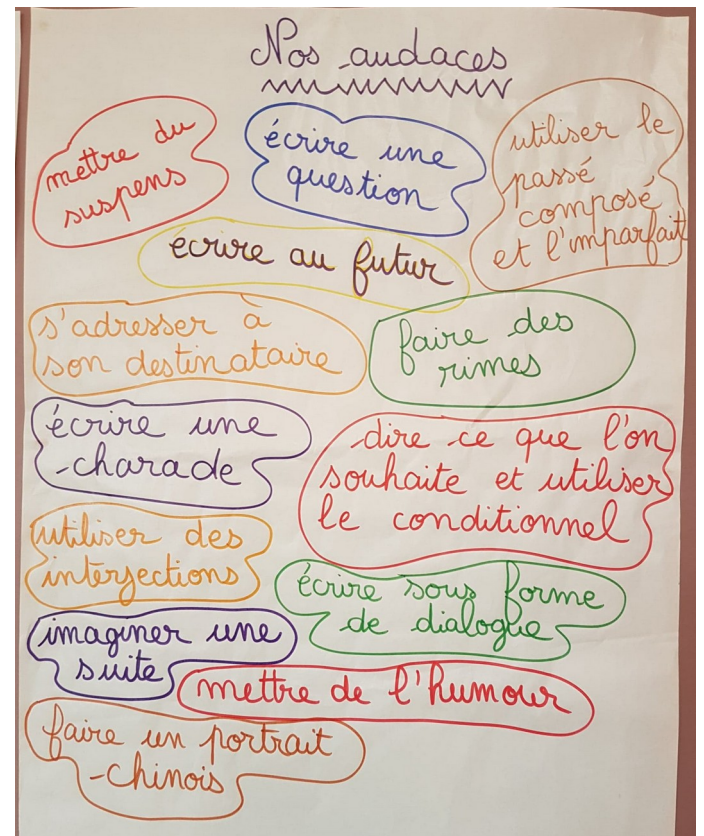 Nos audaces
mettre du
suspens
écrire une
question
utiliser le
passé
composé
et l'imparfait
écrire au futur
s'adresser à
son destinataire
faire des
rimes
écrire une
charade
dire ce que l'on
souhaite et utiliser
le conditionnel
utiliser des
interjections
écrire sous forme
de dialogue
imaginer une
suite
mettre de l'humour
faire un portrait
chinois